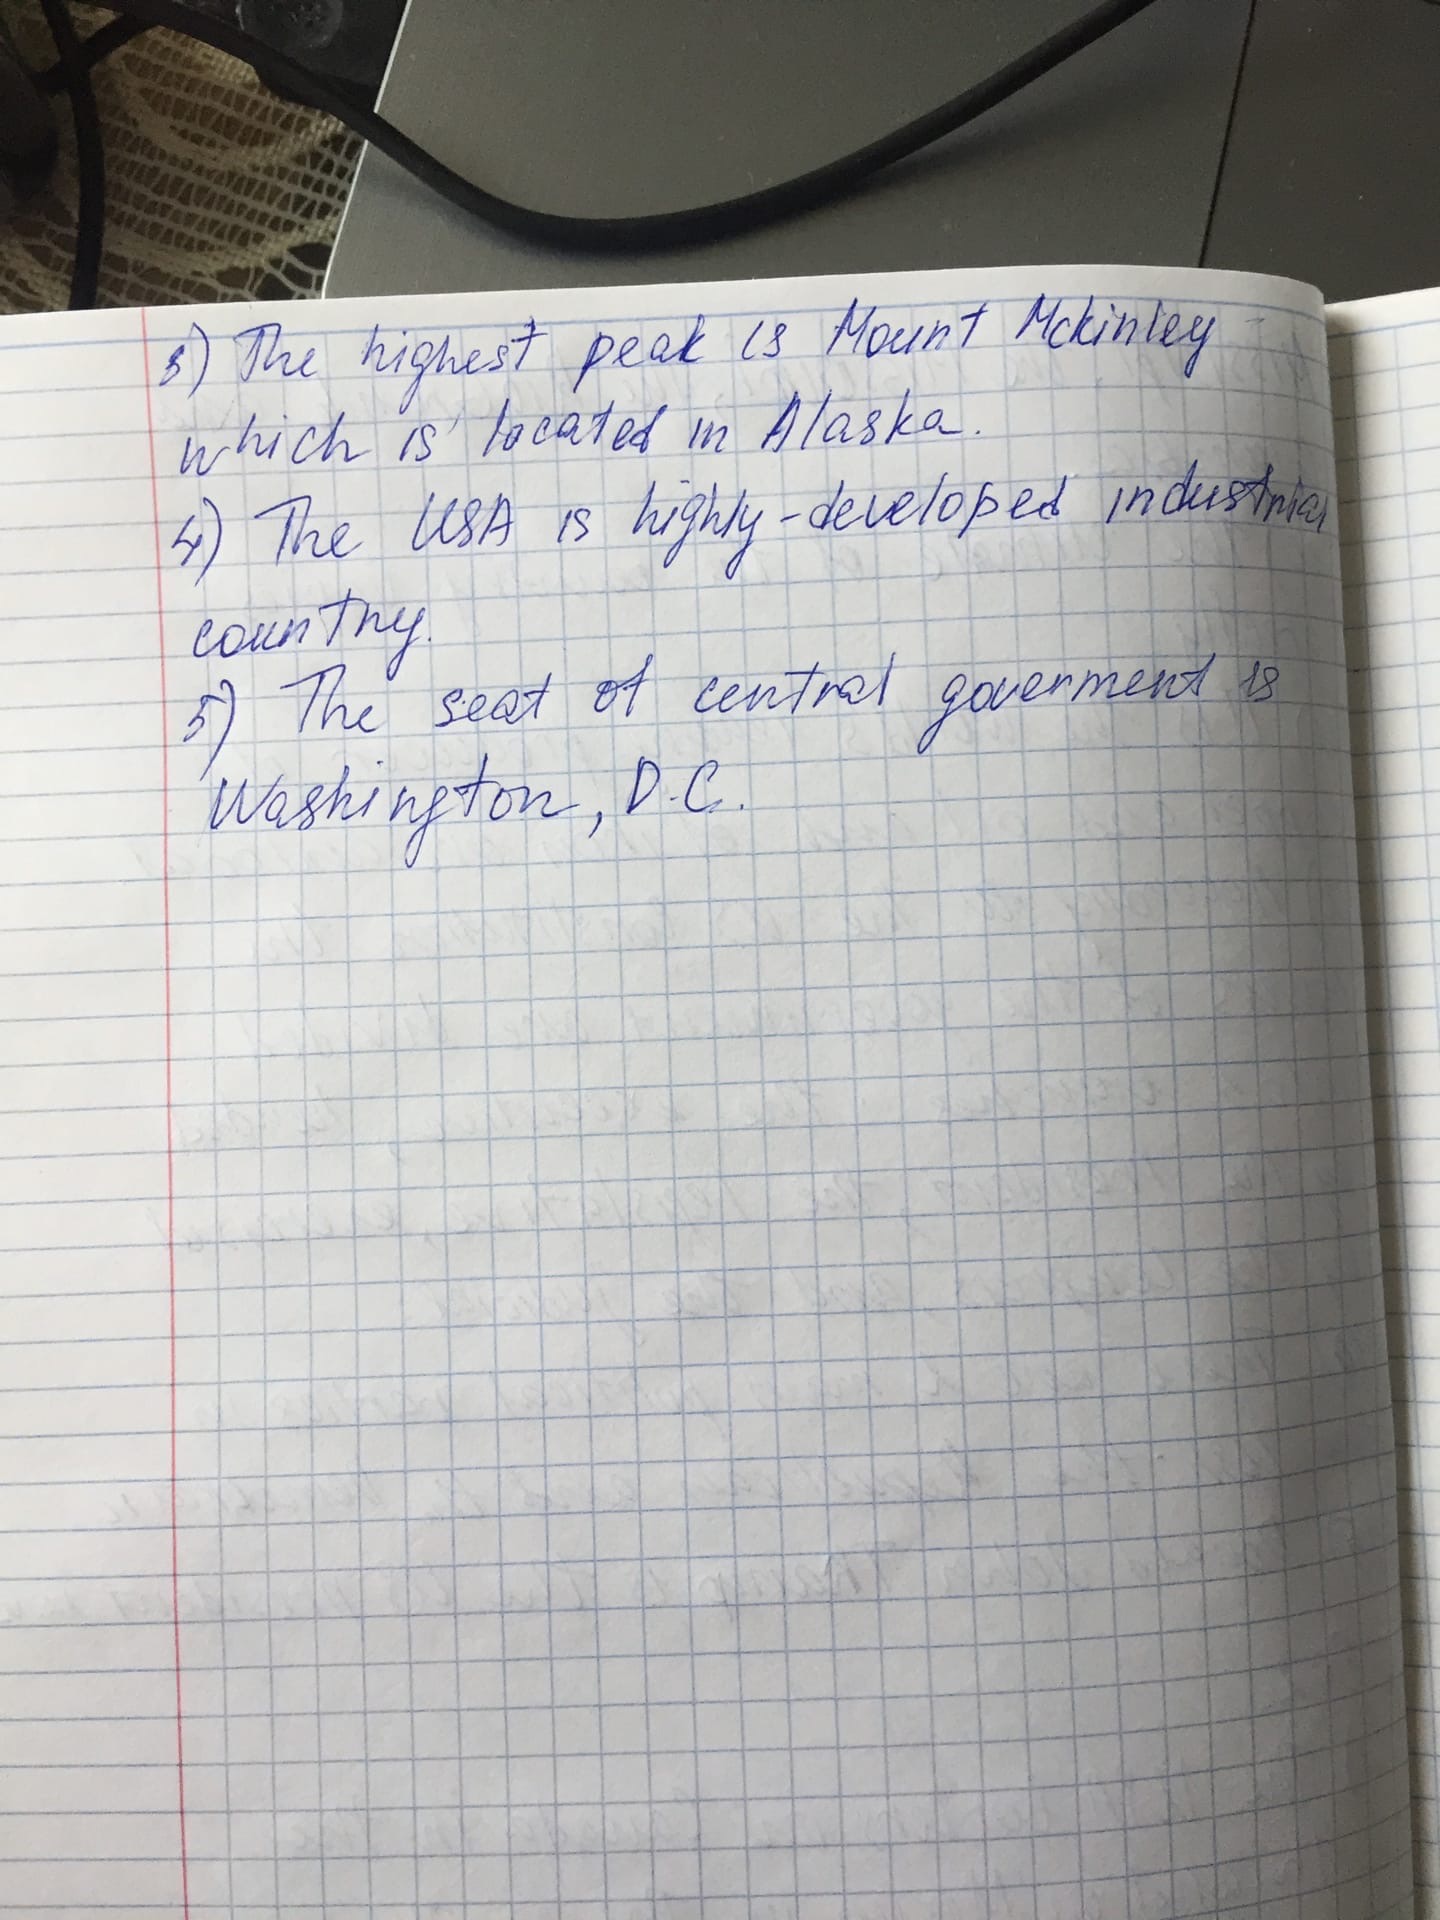 3) The highest peak is Mount Mckinley
which is located in Alaska.
4) The USA is highly-developed industrial
country.
5) The seat of central goverment is
Washington, D.C.